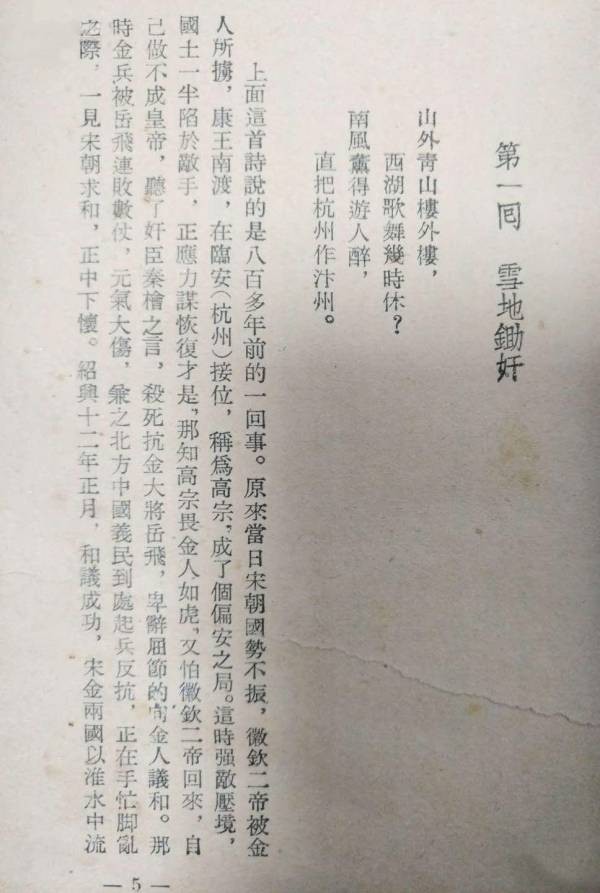 第一囘　雪地鋤奸
山外靑山樓外樓，
西湖歌舞幾時休？
南風薰得遊人醉，
直把杭州作汴州。
上面這首詩說的是八百多年前的一回事。原來當日宋朝國勢不振，徽欽二帝被金
人所擄，康王南渡，在臨安（杭州）接位，稱爲高宗，成了個偏安之局。這時强敵壓境，
國土一半陷於敵手，正應力謀恢復才是，那知高宗畏金人如虎，又怕徽欽二帝回來，自
己做不成皇帝，聽了奸臣秦檜之言，殺死抗金大將岳飛，卑辭屈節的向金人議和。那
時金兵被岳飛連敗數仗，元氣大傷，兼之北方中國義民到處起兵反抗，正在手忙脚亂
之際，一見宋朝求和，正中下懷。紹興十二年正月，和議成功，宋金兩國以淮水中流
— 5 —